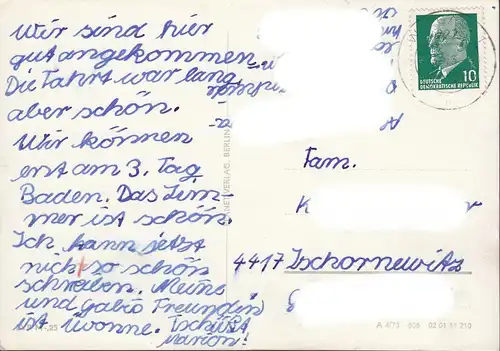 Wir sind hier
gut angekommen.
Die Fahrt war lang,
aber schön.
Wir können
erst am 3. Tag
Baden. Das Zim-
mer ist schön.
Ich kann jetzt
nicht so schön
schreiben. Meine
und gabis Freundin
ist Ivonne. Tschüß
Marion!
VERLAG, BERLIN
10
DEUTSCHE
DEMOKRATISCHE REPUBLIK
Fam.
K
4417 Zschornewitz
A 4/73 02 01 11 210